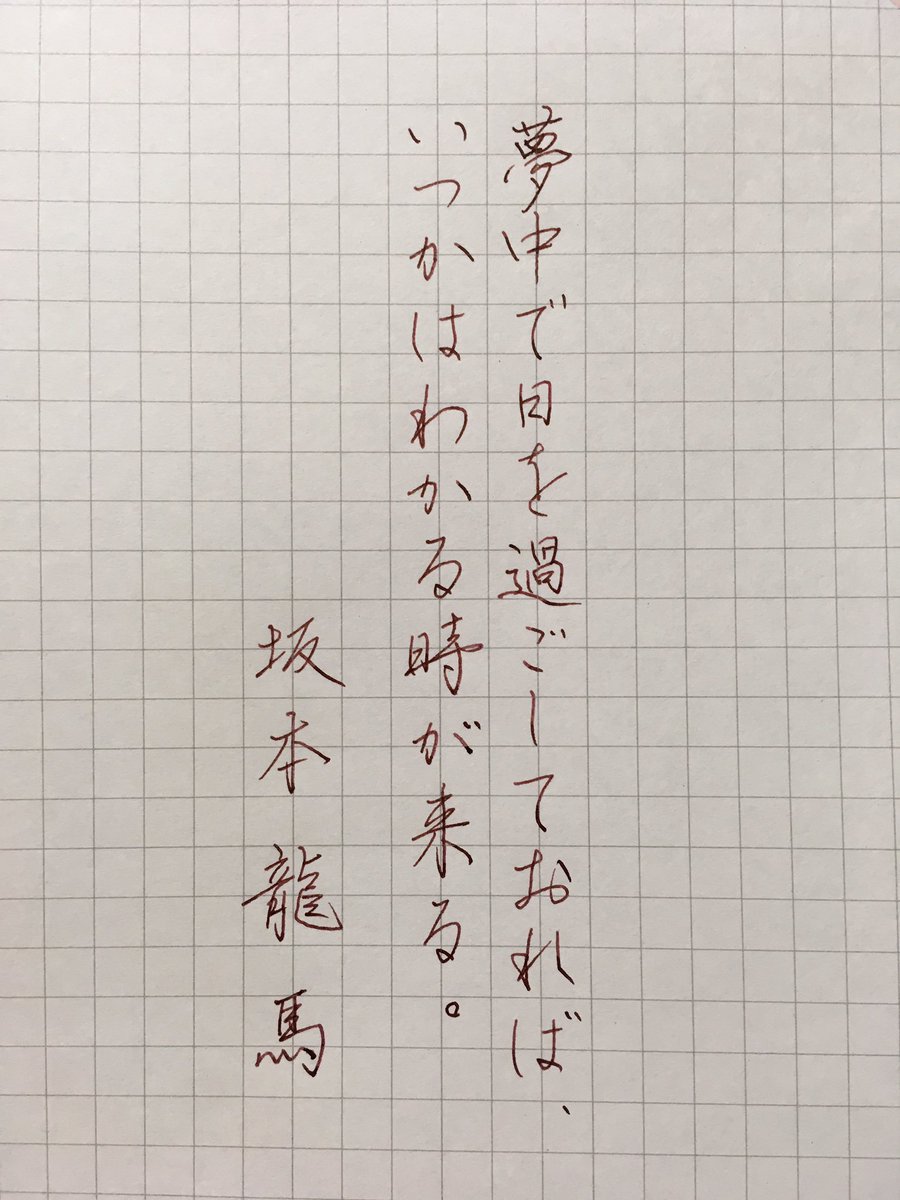 夢中で日を過ごしておれば、
いつかはわかる時が来る。
坂本龍馬